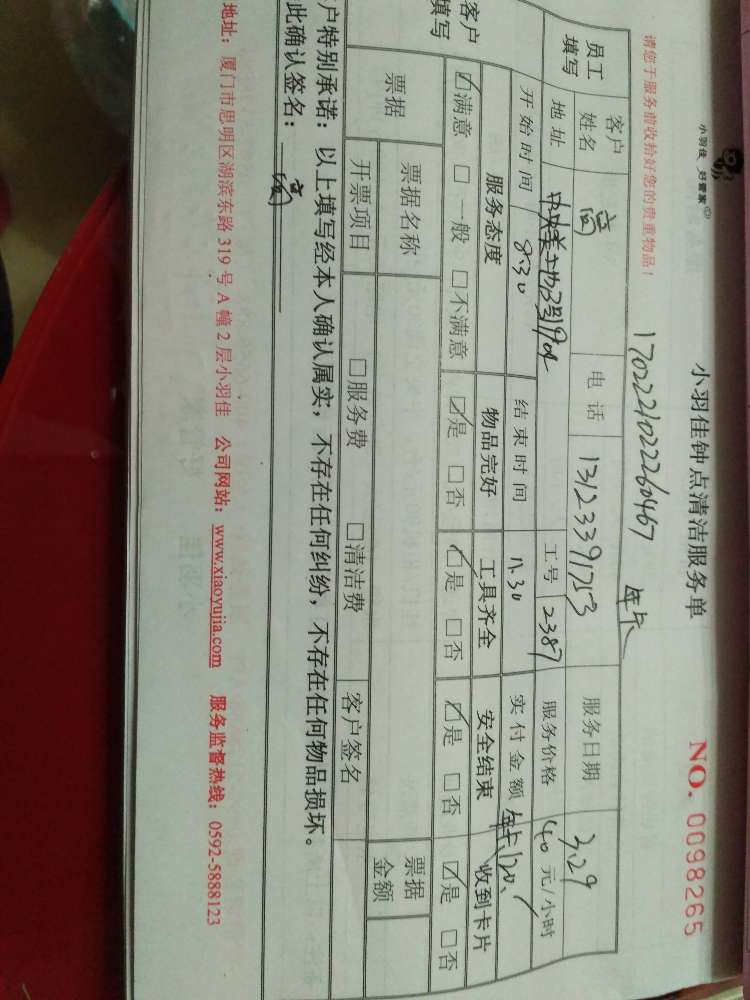 小羽佳 好管家
小羽佳钟点清洁服务单
NO. 0098265
请您于服务前收拾好您的贵重物品！
1702221022260467 年卡
员工填写
客户姓名 高 电话 13123391753 服务日期 3.29
地址 工号 2387 服务价格 40 元/小时
开始时间 8:30 结束时间 11.30 实付金额 年卡120.
客户填写
服务态度 物品完好 工具齐全 安全结束 收到卡片
☑满意 □一般 □不满意 ☑是 □否 ☑是 □否 ☑是 □否 ☑是 □否
票据 票据名称 票据金额
开票项目 □服务费 □清洁费 客户签名
户特别承诺：以上填写经本人确认属实，不存在任何纠纷，不存在任何物品损坏。
此确认签名：高
地址：厦门市思明区湖滨东路 319 号 A 幢 2 层小羽佳 公司网站：www.xiaoyujia.com 服务监督热线：0592-5888123